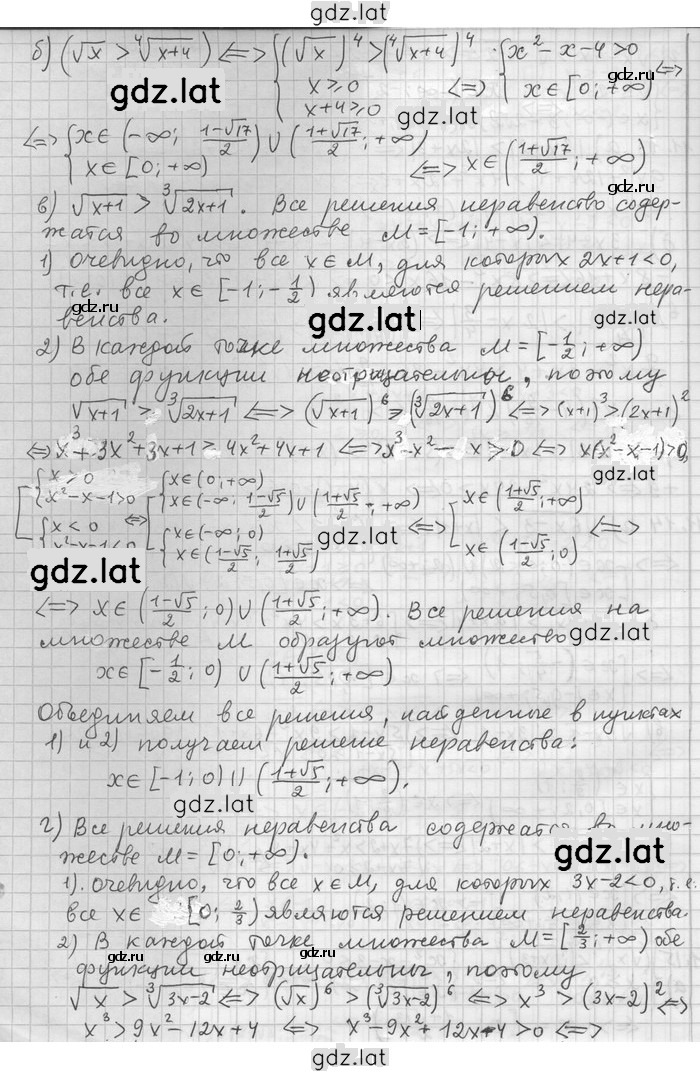 gdz.lat
б) (√x > ⁴√(x+4)) <=> { (√x)⁴ > (⁴√(x+4))⁴ ; x ≥ 0 ; x+4 ≥ 0 <=> { x² - x - 4 > 0 ; x ∈ [0; +∞) <=>
gdz.lat
gdz.lat
gdz.lat
<=> { x ∈ (-∞; (1-√17)/2) ∪ ((1+√17)/2; +∞) ; x ∈ [0; +∞) <=> x ∈ ((1+√17)/2; +∞)
gdz.lat
в) √(x+1) > ³√(2x+1). Все решения неравенство содер-
жатся во множестве M = [-1; +∞).
1) Очевидно, что все x ∈ M, для которых 2x+1 < 0,
gdz.lat
т.е. все x ∈ [-1; -1/2) являются решением нера-
венства.
gdz.lat
gdz.lat
2) В каждой точке множества M = [-1/2; +∞)
обе функции неотрицательны, поэтому
√(x+1) > ³√(2x+1) <=> (√(x+1))⁶ > (³√(2x+1))⁶ <=> (x+1)³ > (2x+1)²
<=> x³ + 3x² + 3x + 1 > 4x² + 4x + 1 <=> x³ - x² - x > 0 <=> x(x² - x - 1) > 0
[ { x > 0 ; x² - x - 1 > 0 ; { x < 0 ; x² - x - 1 < 0 <=> [ { x ∈ (0; +∞) ; x ∈ (-∞; (1-√5)/2) ∪ ((1+√5)/2; +∞) ; { x ∈ (-∞; 0) ; x ∈ ((1-√5)/2; (1+√5)/2) <=> [ x ∈ ((1+√5)/2; +∞) ; x ∈ ((1-√5)/2; 0) <=>
gdz.lat
gdz.lat
<=> x ∈ ((1-√5)/2; 0) ∪ ((1+√5)/2; +∞). Все решения на
множестве M образуют множество
gdz.lat
x ∈ [-1/2; 0) ∪ ((1+√5)/2; +∞)
Объединяем все решения, найденные в пунктах
1) и 2) получаем решение неравенства:
x ∈ [-1; 0) ∪ ((1+√5)/2; +∞).
gdz.lat
г) Все решения неравенства содержатся во мно-
жестве M = [0; +∞).
gdz.lat
1). Очевидно, что все x ∈ M, для которых 3x-2 < 0, т.е.
все x ∈ [0; 2/3) являются решением неравенства
2) В каждой точке множества M = [2/3; +∞) обе
функции неотрицательны, поэтому
√x > ³√(3x-2) <=> (√x)⁶ > (³√(3x-2))⁶ <=> x³ > (3x-2)² <=>
x³ > 9x² - 12x + 4 <=> x³ - 9x² + 12x - 4 > 0 <=>
gdz.lat